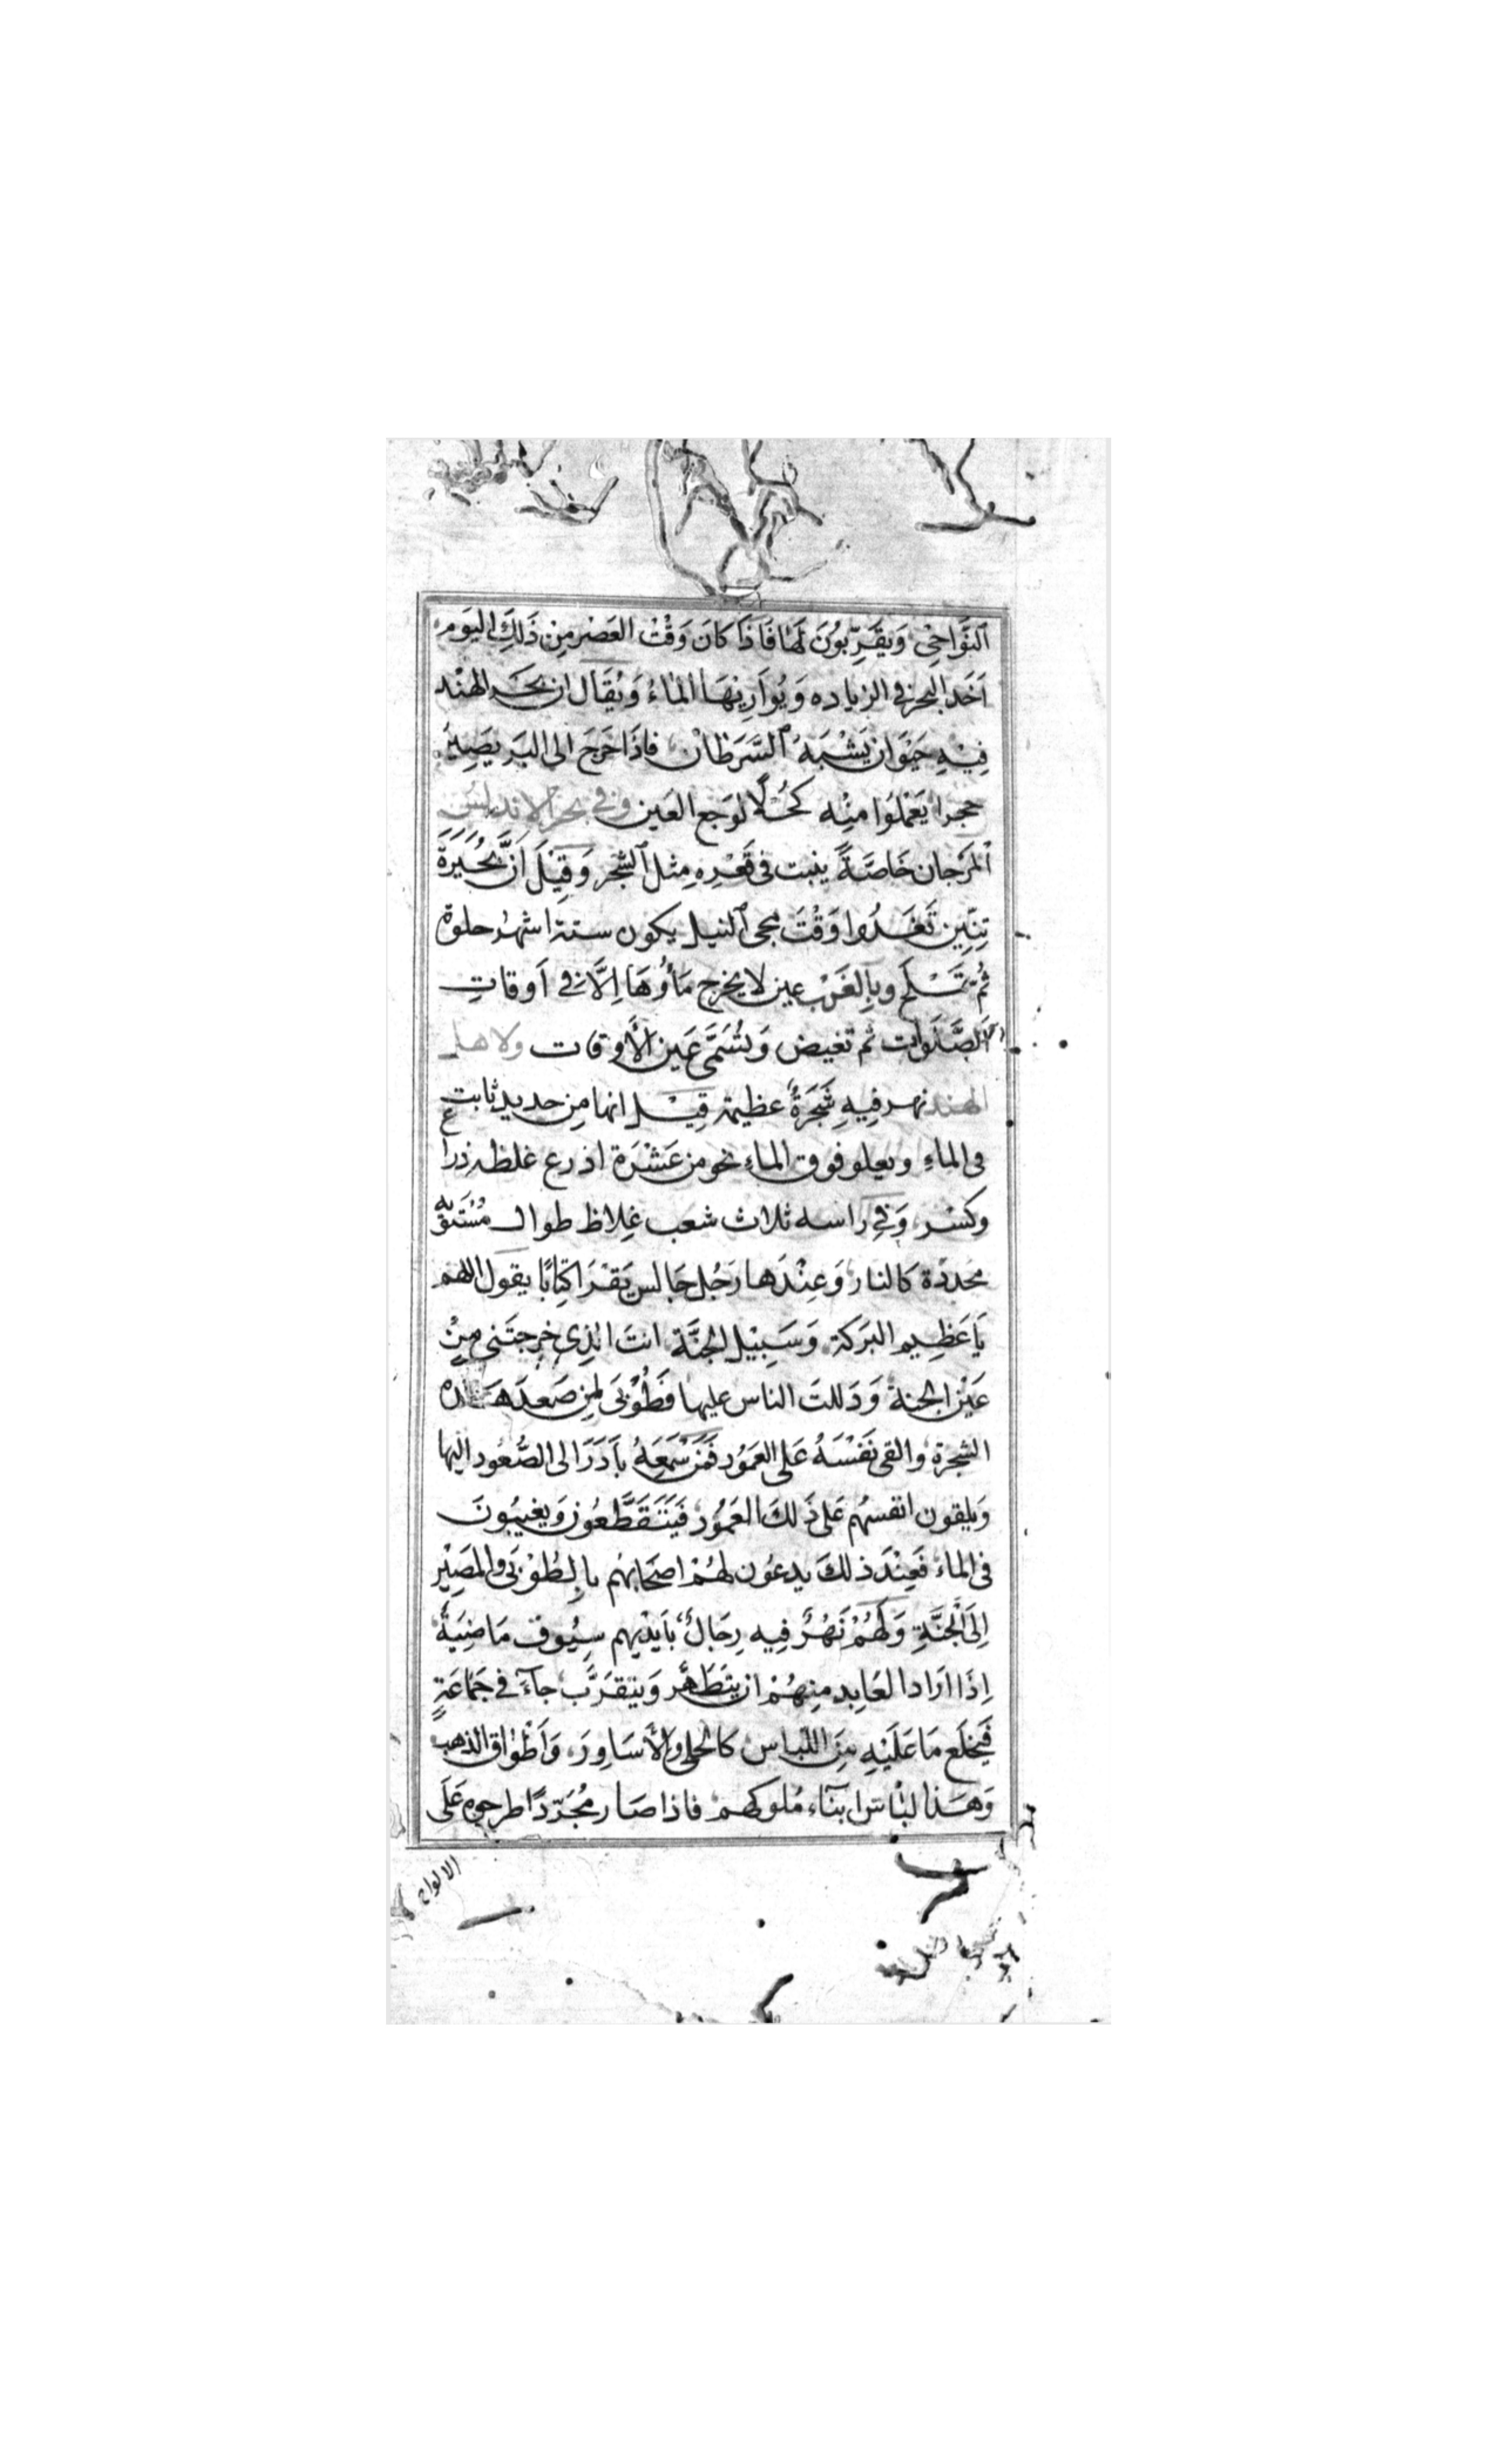 ٱلنَّوَاحِى وَيقَرِّبُونَ لَهَا فَاذَا كَانَ وَقْتُ العَصْرِ مِنْ ذَلِكَ اليَوم
اَخَذ البحر في الزياده وَيُوَارِيْهَا الماءُ وَيُقَال ان بحر الهند
فِيْهِ حَيَوَان يَشْبَهُ ٱلسَّرَطَانْ فاذَا خَرَجَ الى البَر يَصِيرُ
حجرا يَعْمَلُوا مِنْه كُحْلاً لوَجَع العَين وفي بحر الاندلس
ٱلمَرْجان خَاصَّةً ينبت فى قَعْرِهِ مِثل ٱلشَّجَر وَقِيْلَ اَنَّ بُحَيَرَةَ
تِنِّين وَقْتَ مجى ٱلنيل يكون ستة اشهر حلوة
ثُمَّ تَمْلَح وبِالغَرْب عين لا يخرج مَاؤُهَا اِلَّا فى اَوقاتِ
ٱلصَّلَوات ثم تغيض وَتُسَمَّى عَين الأَوقات ولاهل
الهند نهر فِيهِ شَجَرَةُ عظيمة قِيْل انها مِن حديد ثابت
فى الماءِ ويعلو فوق الماءِ نحو من عَشْرَة اذرع غلظه ذراع
وكسر وَفى راسه ثلاث شعب غِلاظ طوال مُسْتَوِيه
محددة كالنار وَعِنْدَها رَجُل جَالس يَقْرَا كِتَابًا يقول اللهم
يَا عَظِيم البَركة وَسَبِيْل الجنَّة انتَ الذِى خرجتَنى مِنْ
عَيْن الجنة وَدَللتَ الناس عليها فَطُوْبَى لِمن صَعدَ هَذه
الشجرة والقى نَفْسَهُ عَلى العَمُود فَمَنْ سَمعَهُ بَادَرَ الى الصُّعُود اليها
وَيلقون انفسهُم عَلى ذَلكَ العَمُود فَيَتَقَطَّعُون وَيغيبُونَ
فى الماءْ فَعِنْدَ ذلكَ يدعُون لهُمْ اصحَابهُم بِالطُوْبَى والمَصِيْر
اِلَى ٱلجنَّةِ وَلَهُمْ نَهْرٌ فِيه رِجَالٌ بَايْدِيْهِم سِيُوف مَاضِيَةٌ
اِذَا اَرَادا لعَابِد مِنهُمْ ان يتَطَهَّر وَيتقَرَّب جآءَ فى جَمَاعَةٍ
فَيخلَع مَا عَلَيْهِ مِنَ اللبَاس كالحلى والأَسَاوِرَ وَاَطْوَاق الذهب
وَهَذا لبْاسَ ابنآء مُلوكهمْ فاذا صَار مُجَرّدًا طرحوه عَلَى
الالواح